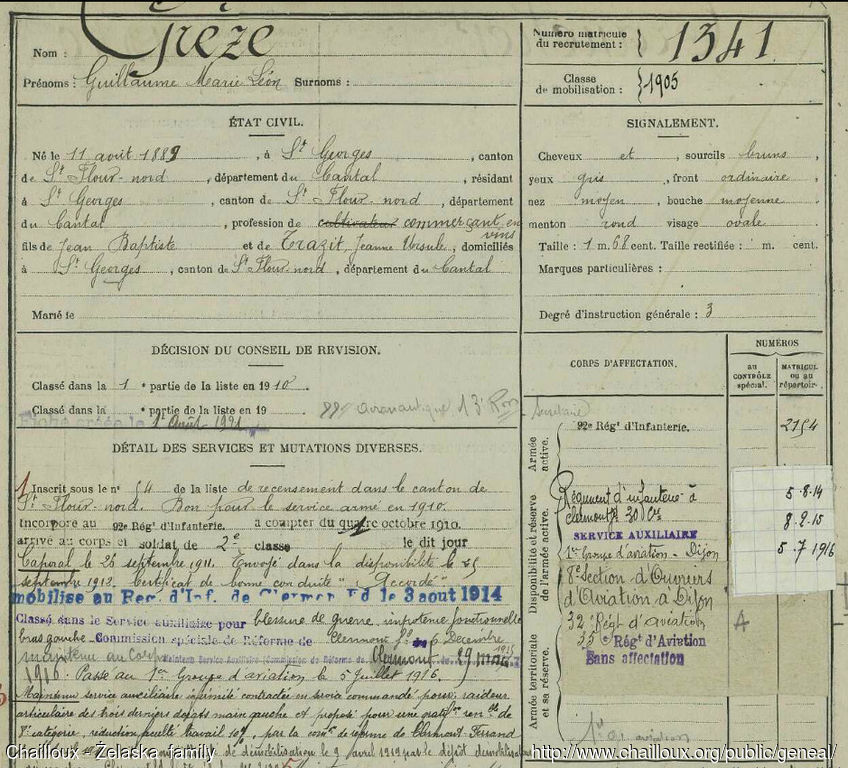 Nom : Grèze
Prénoms : Guillaume Marie Léon Surnoms :
Numéro matricule
du recrutement : 1341
Classe
de mobilisation : 1905
ÉTAT CIVIL.
Né le 11 août 1889, à St Georges, canton
de St Flour-nord, département du Cantal, résidant
à St Georges, canton de St Flour-nord, département
du Cantal, profession de cultivateur commerçant en
vins
fils de Jean Baptiste et de Trazit Jeanne Ursule, domiciliés
à St Georges, canton de St Flour-nord, département du Cantal
Marié le
SIGNALEMENT.
Cheveux et, sourcils bruns,
yeux gris, front ordinaire,
nez moyen, bouche moyenne
menton rond visage ovale
Taille : 1 m. 68 cent. Taille rectifiée : m. cent.
Marques particulières :
Degré d'instruction générale : 3
DÉCISION DU CONSEIL DE REVISION.
Classé dans la 1e partie de la liste en 1910.
Classé dans la e partie de la liste en 19
1er Août 1921
DÉTAIL DES SERVICES ET MUTATIONS DIVERSES.
Inscrit sous le n° 54 de la liste de recensement dans le canton de
St Flour-nord. Bon pour le service armé en 1910.
Incorporé au 92e Régt d'Infanterie. à compter du octobre 1910.
arrivé au corps et soldat de 2e classe le dit jour
Caporal le 26 septembre 1911. Envoyé dans la disponibilité le 25
septembre 1912. Certificat de bonne conduite "Accordé"
mobilisé au Reg. d'Inf. de Clermont Fd le 3 aout 1914
Classé dans le Service auxiliaire pour blessure de guerre, impotence fonctionnelle
bras gauche Commission spéciale de Réforme de Clermont Fd du 6 Décembre
1915
maintenu au Corps maintenu Service Auxiliaire (Commission de Réforme de Clermont du 29 mai
1916. Passé au 1er Groupe d'aviation le 5 Juillet 1916.
Maintenu service auxiliaire infirmité contractée en service commandé pour: raideur
articulaire des trois derniers doigts main gauche et proposé pour une gratifon renble de
8e catégorie, réduction faculté travail 10%, par la come de réforme de Clermont-Ferrand
de démobilisation le 9 avril 1919 par le dépôt démobilisateur
CORPS D'AFFECTATION.
NUMÉROS
AU
CONTRÔLE
spécial.
MATRICULE
OU AU
répertoire.
Armée
active.
Secrétaire
92e Régt d'Infanterie. 2154
Disponibilité et réserve
de l'armée active.
Régiment d'infanterie à
Clermont Fd
5.8.14
8.2.15
SERVICE AUXILIAIRE
1er Groupe d'aviation - Dijon 5.7.1916
8e Section d'Ouvriers
d'Aviation à Dijon
32e Régt d'aviation
A
Armée territoriale
et sa réserve.
35e Régt d'Aviation
Sans affectation
aviation
Chailloux - Zelaska family
http://www.chailloux.org/public/geneal/